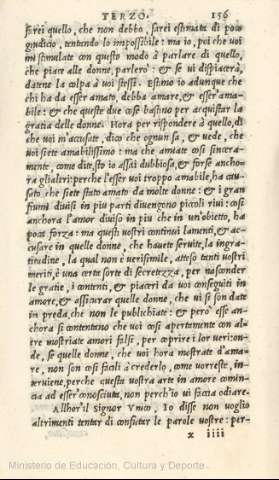 TERZO. 156
farei quello, che non debbo, sarei estimata di poco
giudicio, tentando lo impossibile: ma io, poi che voi
mi stimulate con questo modo à parlare di quello,
che piace alle donne, parlerò: & se vi dispiacerà,
datene la colpa à voi stessi. Estimo io adunque che
chi ha da esser amato, debba amare, & esser'ama-
bile: & che queste due cose bastino per acquistar la
gratia delle donne. Hora per rispondere à quello, di
che voi m'accusate, dico che ognun sa, & vede, che
voi siete amabilissimo: ma che amiate cosi sincera-
mente, come dite, sto io assai dubbiosa, & forse ancho-
ra gli altri: perche l'esser voi troppo amabile, ha cau-
sato, che siete stato amato da molte donne: & i gran
fiumi divisi in piu parti divengono piccoli rivi: cosi
anchora l'amor diviso in piu che in un'obietto, ha
poca forza: ma questi vostri continui lamenti, & ac-
cusare in quelle donne, che havete servite, la ingra-
titudine, la qual non è verisimile, atteso tanti vostri
meriti, è una certe sorte di secretezza, per nasconder
le gratie, i contenti, & piaceri da voi conseguiti in
amore, & assicurar quelle donne, che vi si son date
in preda, che non le publichiate: & però esse an-
chora si contentano che voi cosi apertamente con al-
tre mostriate amori falsi, per coprire i lor veri: on-
de, se quelle donne, che voi hora mostrate d'ama-
re, non son cosi facili à crederlo, come vorreste, in-
terviene, perche questa vostra arte in amore comin-
cia ad esser conosciuta, non perch'io vi faccia odiare.
Allhor'il Signor Vnico, Io disse non voglio
altrimenti tentar di confutar le parole vostre: per-
x iiii
Ministerio de Educación, Cultura y Deporte